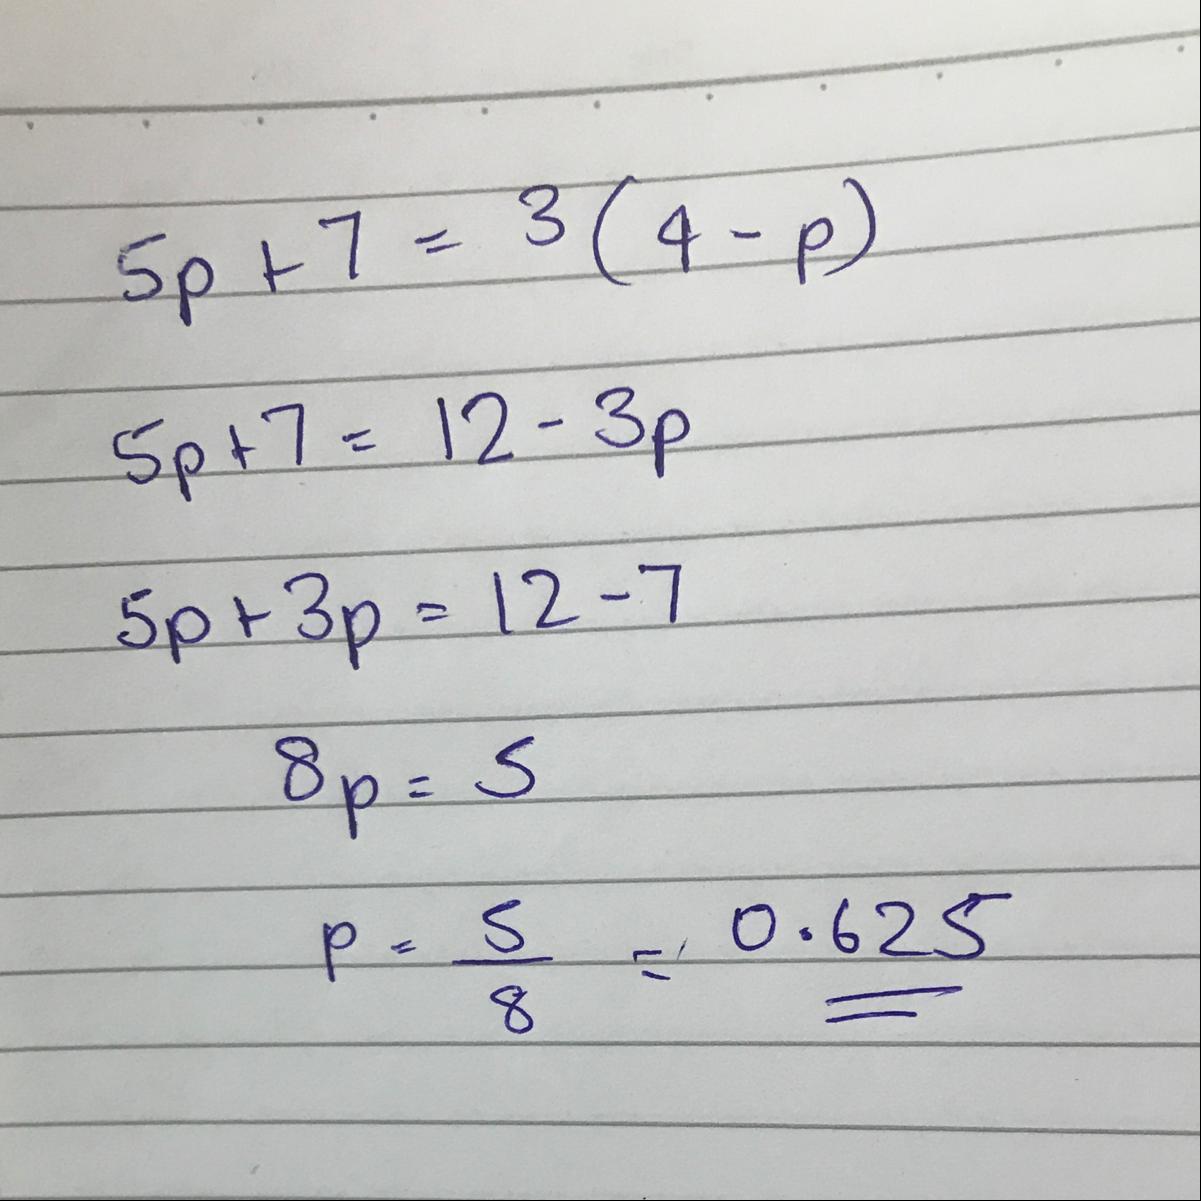 5p + 7 = 3(4 - p)
5p + 7 = 12 - 3p
5p + 3p = 12 - 7
8p = 5
p = 5/8 = 0.625